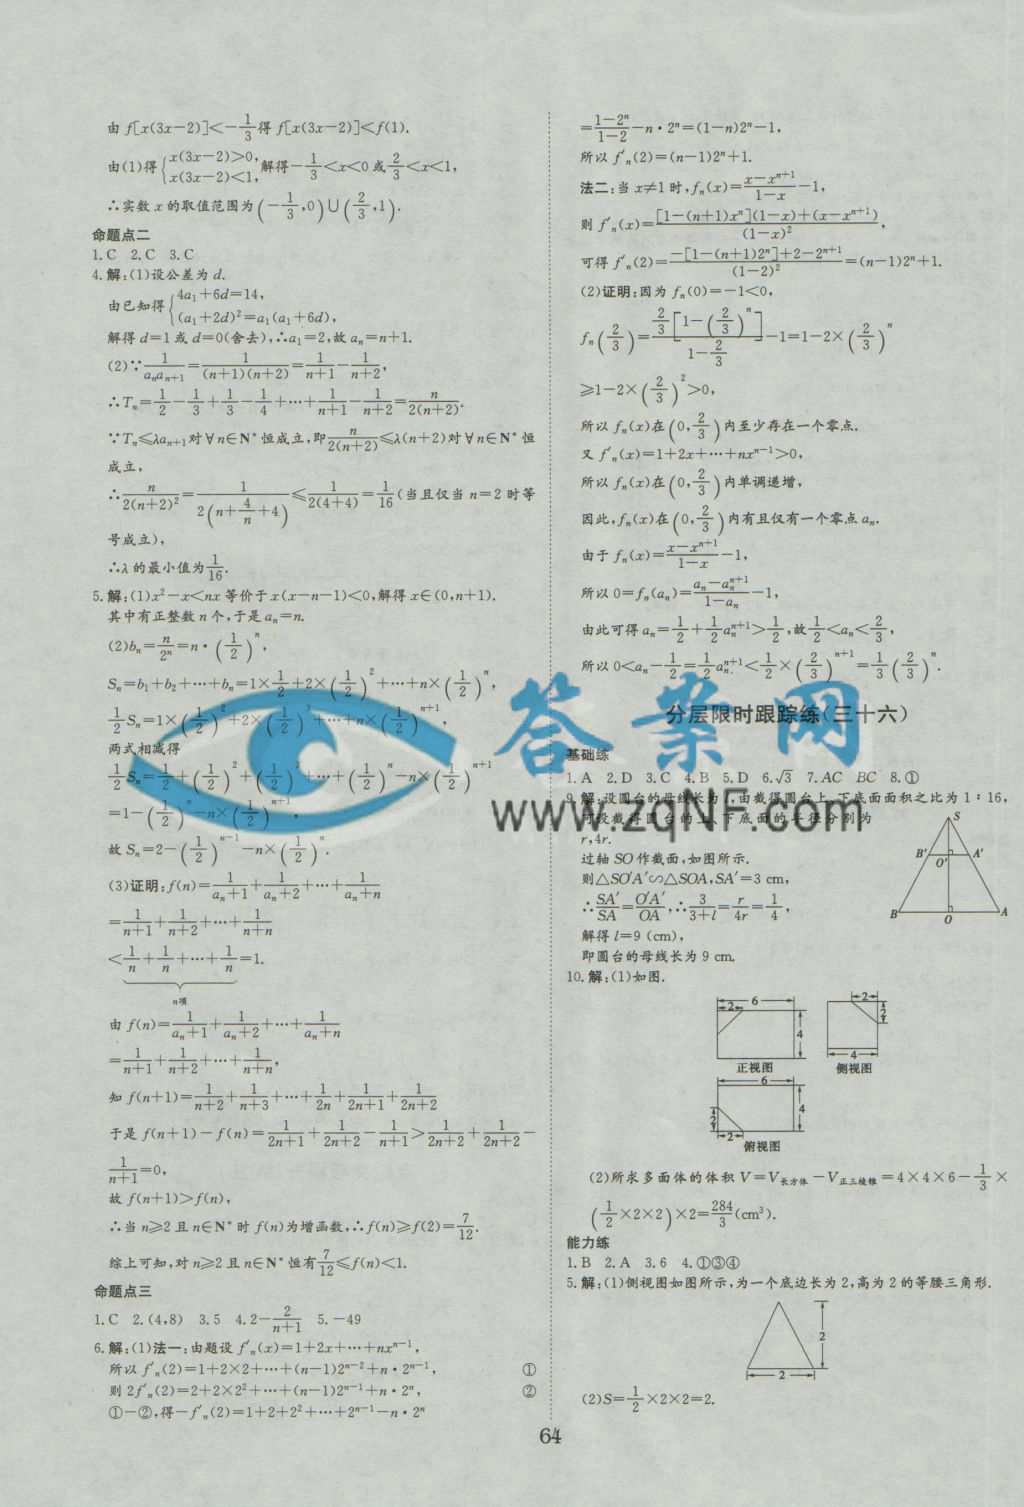 由 f[x(3x−2)]<−1/3得 f[x(3x−2)]<f(1).
由(1)得{x(3x−2)>0, x(3x−2)<1,解得−1/3<x<0或2/3<x<1,
∴实数 x 的取值范围为(−1/3,0)∪(2/3,1).
命题点二
1.C 2.C 3.C
4.解:(1)设公差为 d.
由已知得{4a₁+6d=14, (a₁+2d)²=a₁(a₁+6d),
解得 d=1或 d=0(舍去),∴a₁=2,故 aₙ=n+1.
(2)∵1/(aₙaₙ₊₁)=1/((n+1)(n+2))=1/(n+1)−1/(n+2),
∴Tₙ=1/2−1/3+1/3−1/4+⋯+1/(n+1)−1/(n+2)=n/(2(n+2)).
∵Tₙ≤λaₙ₊₁对∀n∈N*恒成立,即n/(2(n+2))≤λ(n+2)对∀n∈N*恒
成立,
∴n/(2(n+2)²)=1/(2(n+4/n+4))≤1/(2(4+4))=1/16(当且仅当 n=2 时等
号成立),
∴λ的最小值为1/16.
5.解:(1)x²−x<nx 等价于 x(x−n−1)<0,解得 x∈(0,n+1).
其中有正整数 n 个,于是 aₙ=n.
(2)bₙ=n/2ⁿ=n·(1/2)ⁿ,
Sₙ=b₁+b₂+⋯+bₙ=1×1/2+2×(1/2)²+⋯+n×(1/2)ⁿ,
1/2Sₙ=1×(1/2)²+2×(1/2)³+⋯+n×(1/2)ⁿ⁺¹,
两式相减得
1/2Sₙ=1/2+(1/2)²+(1/2)³+⋯+(1/2)ⁿ−n×(1/2)ⁿ⁺¹
=1−(1/2)ⁿ−n×(1/2)ⁿ⁺¹,
故 Sₙ=2−(1/2)ⁿ⁻¹−n×(1/2)ⁿ.
(3)证明:f(n)=1/(aₙ+1)+1/(aₙ+2)+⋯+1/(aₙ+n)
=1/(n+1)+1/(n+2)+⋯+1/(n+n)
<1/n+1/n+⋯+1/n=1.
n项
由 f(n)=1/(aₙ+1)+1/(aₙ+2)+⋯+1/(aₙ+n)
=1/(n+1)+1/(n+2)+⋯+1/(n+n),
知 f(n+1)=1/(n+2)+1/(n+3)+⋯+1/2n+1/(2n+1)+1/(2n+2)
于是 f(n+1)−f(n)=1/(2n+1)+1/(2n+2)−1/(n+1)>1/(2n+2)+1/(2n+2)−
1/(n+1)=0,
故 f(n+1)>f(n),
∴当 n≥2 且 n∈N*时 f(n)为增函数,∴f(n)≥f(2)=7/12.
综上可知,对 n≥2 且 n∈N*恒有7/12≤f(n)<1.
命题点三
1.C 2.(4,8) 3.5 4.2−2/(n+1) 5.−49
6.解:(1)法一:由题设 f′ₙ(x)=1+2x+⋯+nxⁿ⁻¹,
所以 f′ₙ(2)=1+2×2+⋯+(n−1)2ⁿ⁻²+n·2ⁿ⁻¹, ①
则 2f′ₙ(2)=2+2×2²+⋯+(n−1)2ⁿ⁻¹+n·2ⁿ, ②
①−②,得−f′ₙ(2)=1+2+2²+⋯+2ⁿ⁻¹−n·2ⁿ
=(1−2ⁿ)/(1−2)−n·2ⁿ=(1−n)2ⁿ−1,
所以 f′ₙ(2)=(n−1)2ⁿ+1.
法二:当 x≠1 时,fₙ(x)=(x−xⁿ⁺¹)/(1−x)−1,
则 f′ₙ(x)=([1−(n+1)xⁿ](1−x)+(x−xⁿ⁺¹))/(1−x)²,
可得 f′ₙ(2)=(−[1−(n+1)2ⁿ]+2−2ⁿ⁺¹)/(1−2)²=(n−1)2ⁿ+1.
(2)证明:因为 fₙ(0)=−1<0,
fₙ(2/3)=(2/3[1−(2/3)ⁿ])/(1−2/3)−1=1−2×(2/3)ⁿ
≥1−2×(2/3)²>0,
所以 fₙ(x)在(0,2/3)内至少存在一个零点.
又 f′ₙ(x)=1+2x+⋯+nxⁿ⁻¹>0,
所以 fₙ(x)在(0,2/3)内单调递增,
因此,fₙ(x)在(0,2/3)内有且仅有一个零点 aₙ.
由于 fₙ(x)=(x−xⁿ⁺¹)/(1−x)−1,
所以 0=fₙ(aₙ)=(aₙ−aₙⁿ⁺¹)/(1−aₙ)−1,
由此可得 aₙ=1/2+1/2aₙⁿ⁺¹>1/2,故1/2<aₙ<2/3,
所以 0<aₙ−1/2=1/2aₙⁿ⁺¹<1/2×(2/3)ⁿ⁺¹=1/3(2/3)ⁿ.
分层限时跟踪练(三十六)
基础练
1.A 2.D 3.C 4.B 5.D 6.√3 7.AC BC 8.①
9.解:设圆台的母线长为 l,由截得圆台上、下底面面积之比为 1∶16,
可设截得圆台的上、下底面的半径分别为
r,4r.
过轴 SO 作截面,如图所示.
则△SO′A′∽△SOA,SA′=3 cm,
∴SA′/SA=O′A′/OA,∴3/(3+l)=r/4r=1/4,
解得 l=9 (cm),
即圆台的母线长为 9 cm.
S
B′ O′ A′
B O A
10.解:(1)如图.
6 2 4
正视图
2 2 4
侧视图
6 4 2 2
俯视图
(2)所求多面体的体积 V=V长方体−V正三棱锥=4×4×6−1/3×
(1/2×2×2)×2=284/3(cm³).
能力练
1.B 2.A 3.6 4.①③④
5.解:(1)侧视图如图所示,为一个底边长为 2,高为 2 的等腰三角形.
2
2
(2)S=1/2×2×2=2.
64
答案网
www.zqNF.com